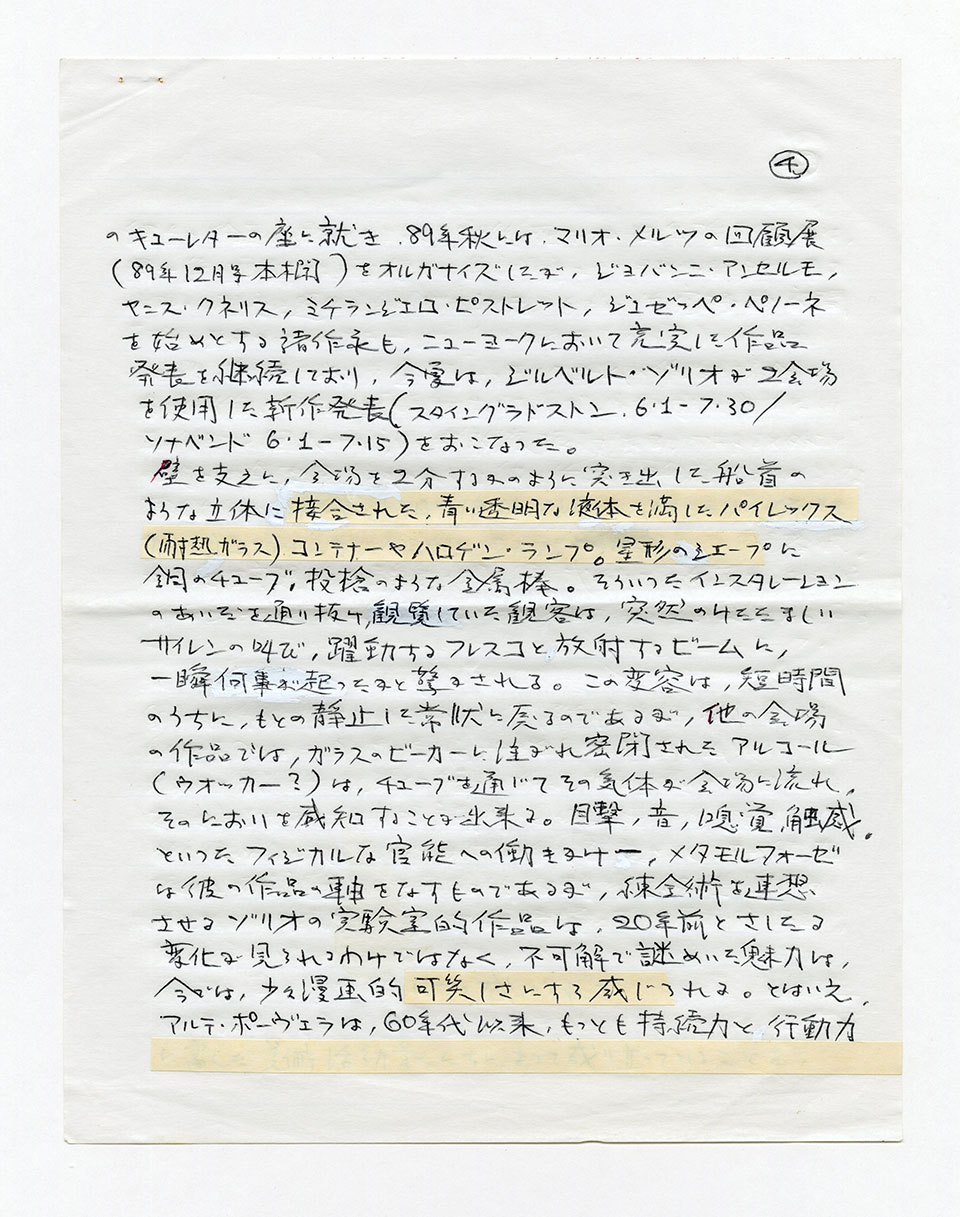 ④
のキューレターの座に就き、89年秋には、マリオ・メルツの回顧展
(89年12月号本欄)をオルガナイズしたが、ジョバンニ・アンセルモ,
ヤニス・クネリス, ミケランジェロ・ピストレット, ジュゼッペ・ペノーネ
を始めとする諸作家も, ニューヨークにおいて充実した作品
発表を継続しており, 今夏は, ジルベルト・ゾリオが2会場
を使用した新作発表(スタイングラドストン. 6・1-7・30/
ソナベンド 6・1-7・15)をおこなった。
壁を支えに, 会場を2分するかのように突き出した船首の
ような立体に接合された, 青い透明な液体を満したパイレックス
(耐熱ガラス)コンテナーやハロゲン・ランプ。星形のシェープに
銅のチューブ, 投槍のような金属棒。そういったインスタレーション
のあいだを通り抜け, 観覧していた観客は, 突然のけたたましい
サイレンの叫び, 躍動するフレスコと放射するビームに,
一瞬何事が起ったかと驚かされる。この変容は, 短時間
のうちに, もとの静止した常状に戻るのであるが, 他の会場
の作品では, ガラスのビーカーに注がれ密閉されたアルコール
(ウオッカー?)は, チューブを通じてその気体が会場に流れ,
そのにおいを感知することが出来る。目撃, 音, 嗅覚, 触感,
といったフィジカルな官能への働きかけー, メタモルフォーゼ
は彼の作品の軸をなすものであるが, 錬金術を連想
させるゾリオの実験室的作品は, 20年前とさしたる
変化が見られるわけではなく, 不可解で謎めいた魅力は,
今では, 少々漫画的可笑しさにすら感じられる。とはいえ,
アルテ・ポーヴェラは, 60年代以来, もっとも持続力と行動力